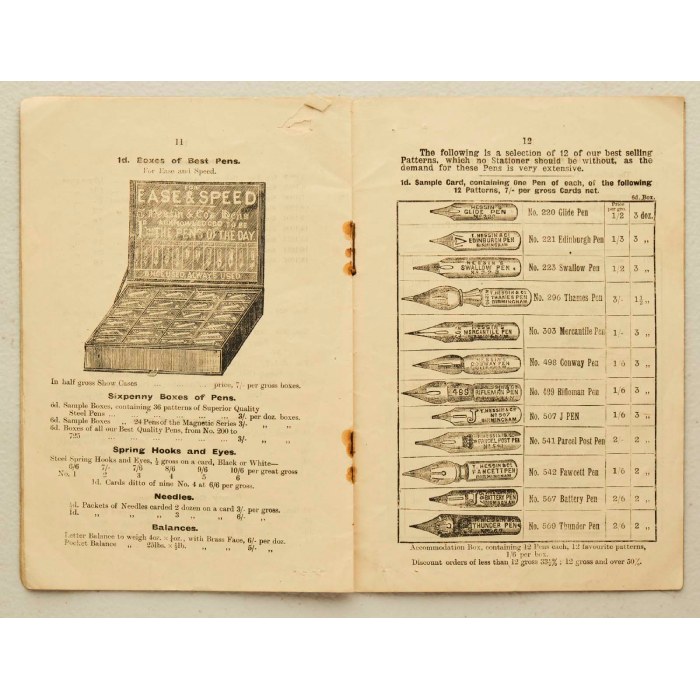 11
1d. Boxes of Best Pens.
For Ease and Speed.
EASE & SPEED
T. Hessin & Co's Pens
ACKNOWLEDGED TO BE
The PENS OF THE DAY.
ONCE USED, ALWAYS USED
In half gross Show Cases ... ... ... price, 7/- per gross boxes.
Sixpenny Boxes of Pens.
6d. Sample Boxes, containing 36 patterns of Superior Quality
Steel Pens ... ... ... ... ... ... 3/. per doz. boxes.
6d. Sample Boxes „ 24 Pens of the Magnetic Series 3/- „ „
6d. Boxes of all our Best Quality Pens, from No. 200 to
725 ... ... ... ... ... ... 3/. „ „
Spring Hooks and Eyes.
Steel Spring Hooks and Eyes, ½ gross on a card, Black or White—
6/6 7/- 7/6 8/6 9/6 10/6 per great gross
No. 1 2 3 4 5 6
1d. Cards ditto of nine No. 4 at 6/6 per gross.
Needles.
½d. Packets of Needles carded 2 dozen on a card 3/- per gross.
1d. „ „ „ 2 „ „ 6/- „
Balances.
Letter Balance to weigh 4oz. × ½oz., with Brass Face, 6/- per doz.
Pocket Balance „ 25lbs. × ½lb. „ „ 5/- „
12
The following is a selection of 12 of our best selling
Patterns, which no Stationer should be without, as the
demand for these Pens is very extensive.
1d. Sample Card, containing One Pen of each, of the following
12 Patterns, 7/- per gross Cards net.
Price per gro
6d. Box.
HESSIN'S GLIDE PEN No. 220 Glide Pen 1/2 3 doz.
T. HESSIN & Co EDINBURGH PEN BIRMINGHAM No. 221 Edinburgh Pen 1/3 3 „
HESSIN'S SWALLOW PEN No. 223 Swallow Pen 1/2 3 „
T. HESSIN & Co THAMES PEN BIRMINGHAM No. 296 Thames Pen 3/- 1½ „
HESSIN'S MERCANTILE PEN No. 303 Mercantile Pen 1/- 3 „
CONWAY PEN No. 498 Conway Pen 1/6 3 „
499 RIFLEMAN PEN No. 499 Rifleman Pen 1/6 3 „
J T. HESSIN & Co No 507 BIRMINGHAM No. 507 J PEN 1/6 3 „
T. HESSIN & Co PARCEL POST PEN No. 541 Parcel Post Pen 2/- 2 „
T. HESSIN & Co FAWCETT PEN BIRMINGHAM No. 542 Fawcett Pen 1/6 2 „
BATTERY PEN BIRMINGHAM No. 567 Battery Pen 2/6 2 „
THUNDER PEN No. 569 Thunder Pen 2/6 2 „
Accommodation Box, containing 12 Pens each, 12 favourite patterns,
1/6 per box.
Discount orders of less than 12 gross 33½% ; 12 gross and over 50%.